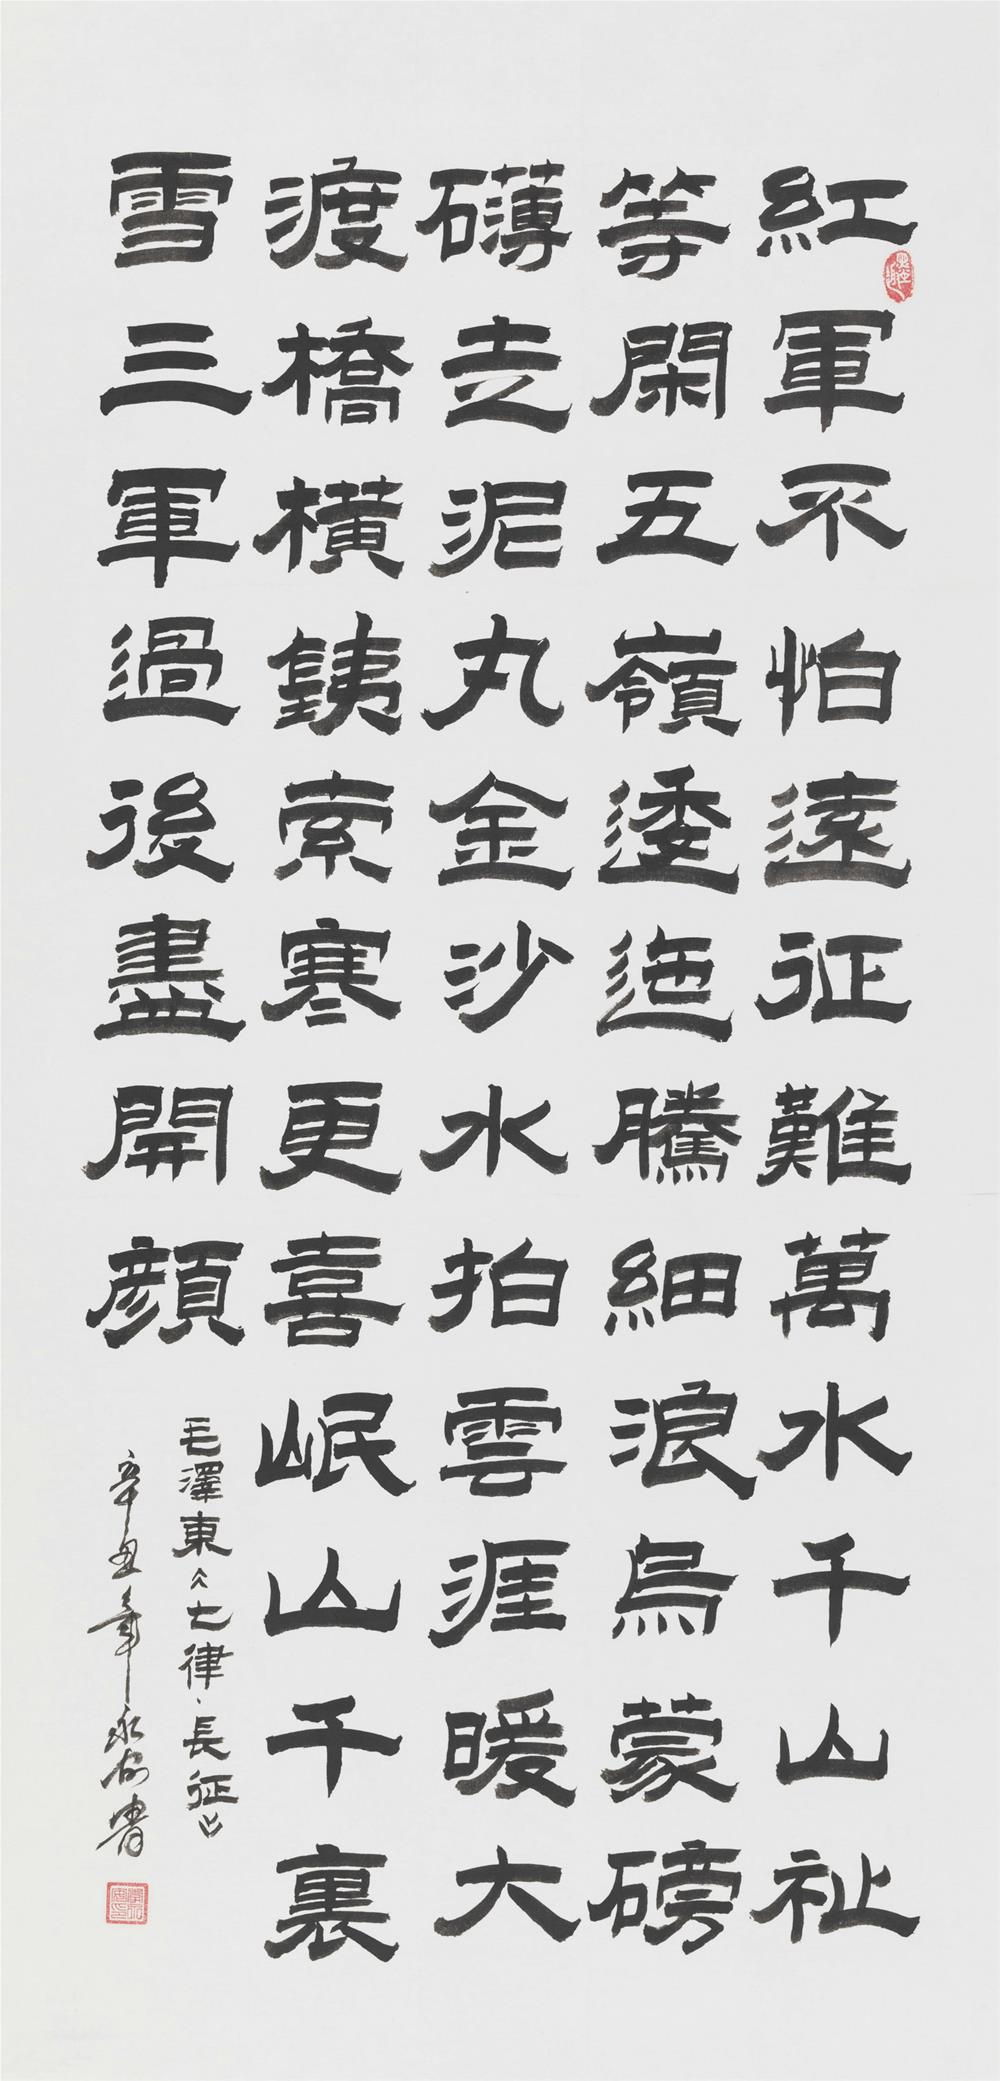 紅軍不怕遠征難萬水千山祉
等閑五嶺逶迤騰細浪烏蒙磅
礴走泥丸金沙水拍雲涯暖大
渡橋橫銕索寒更喜岷山千裏
雪三軍過後盡開顏
毛澤東《七律·長征》
辛丑年永樹書